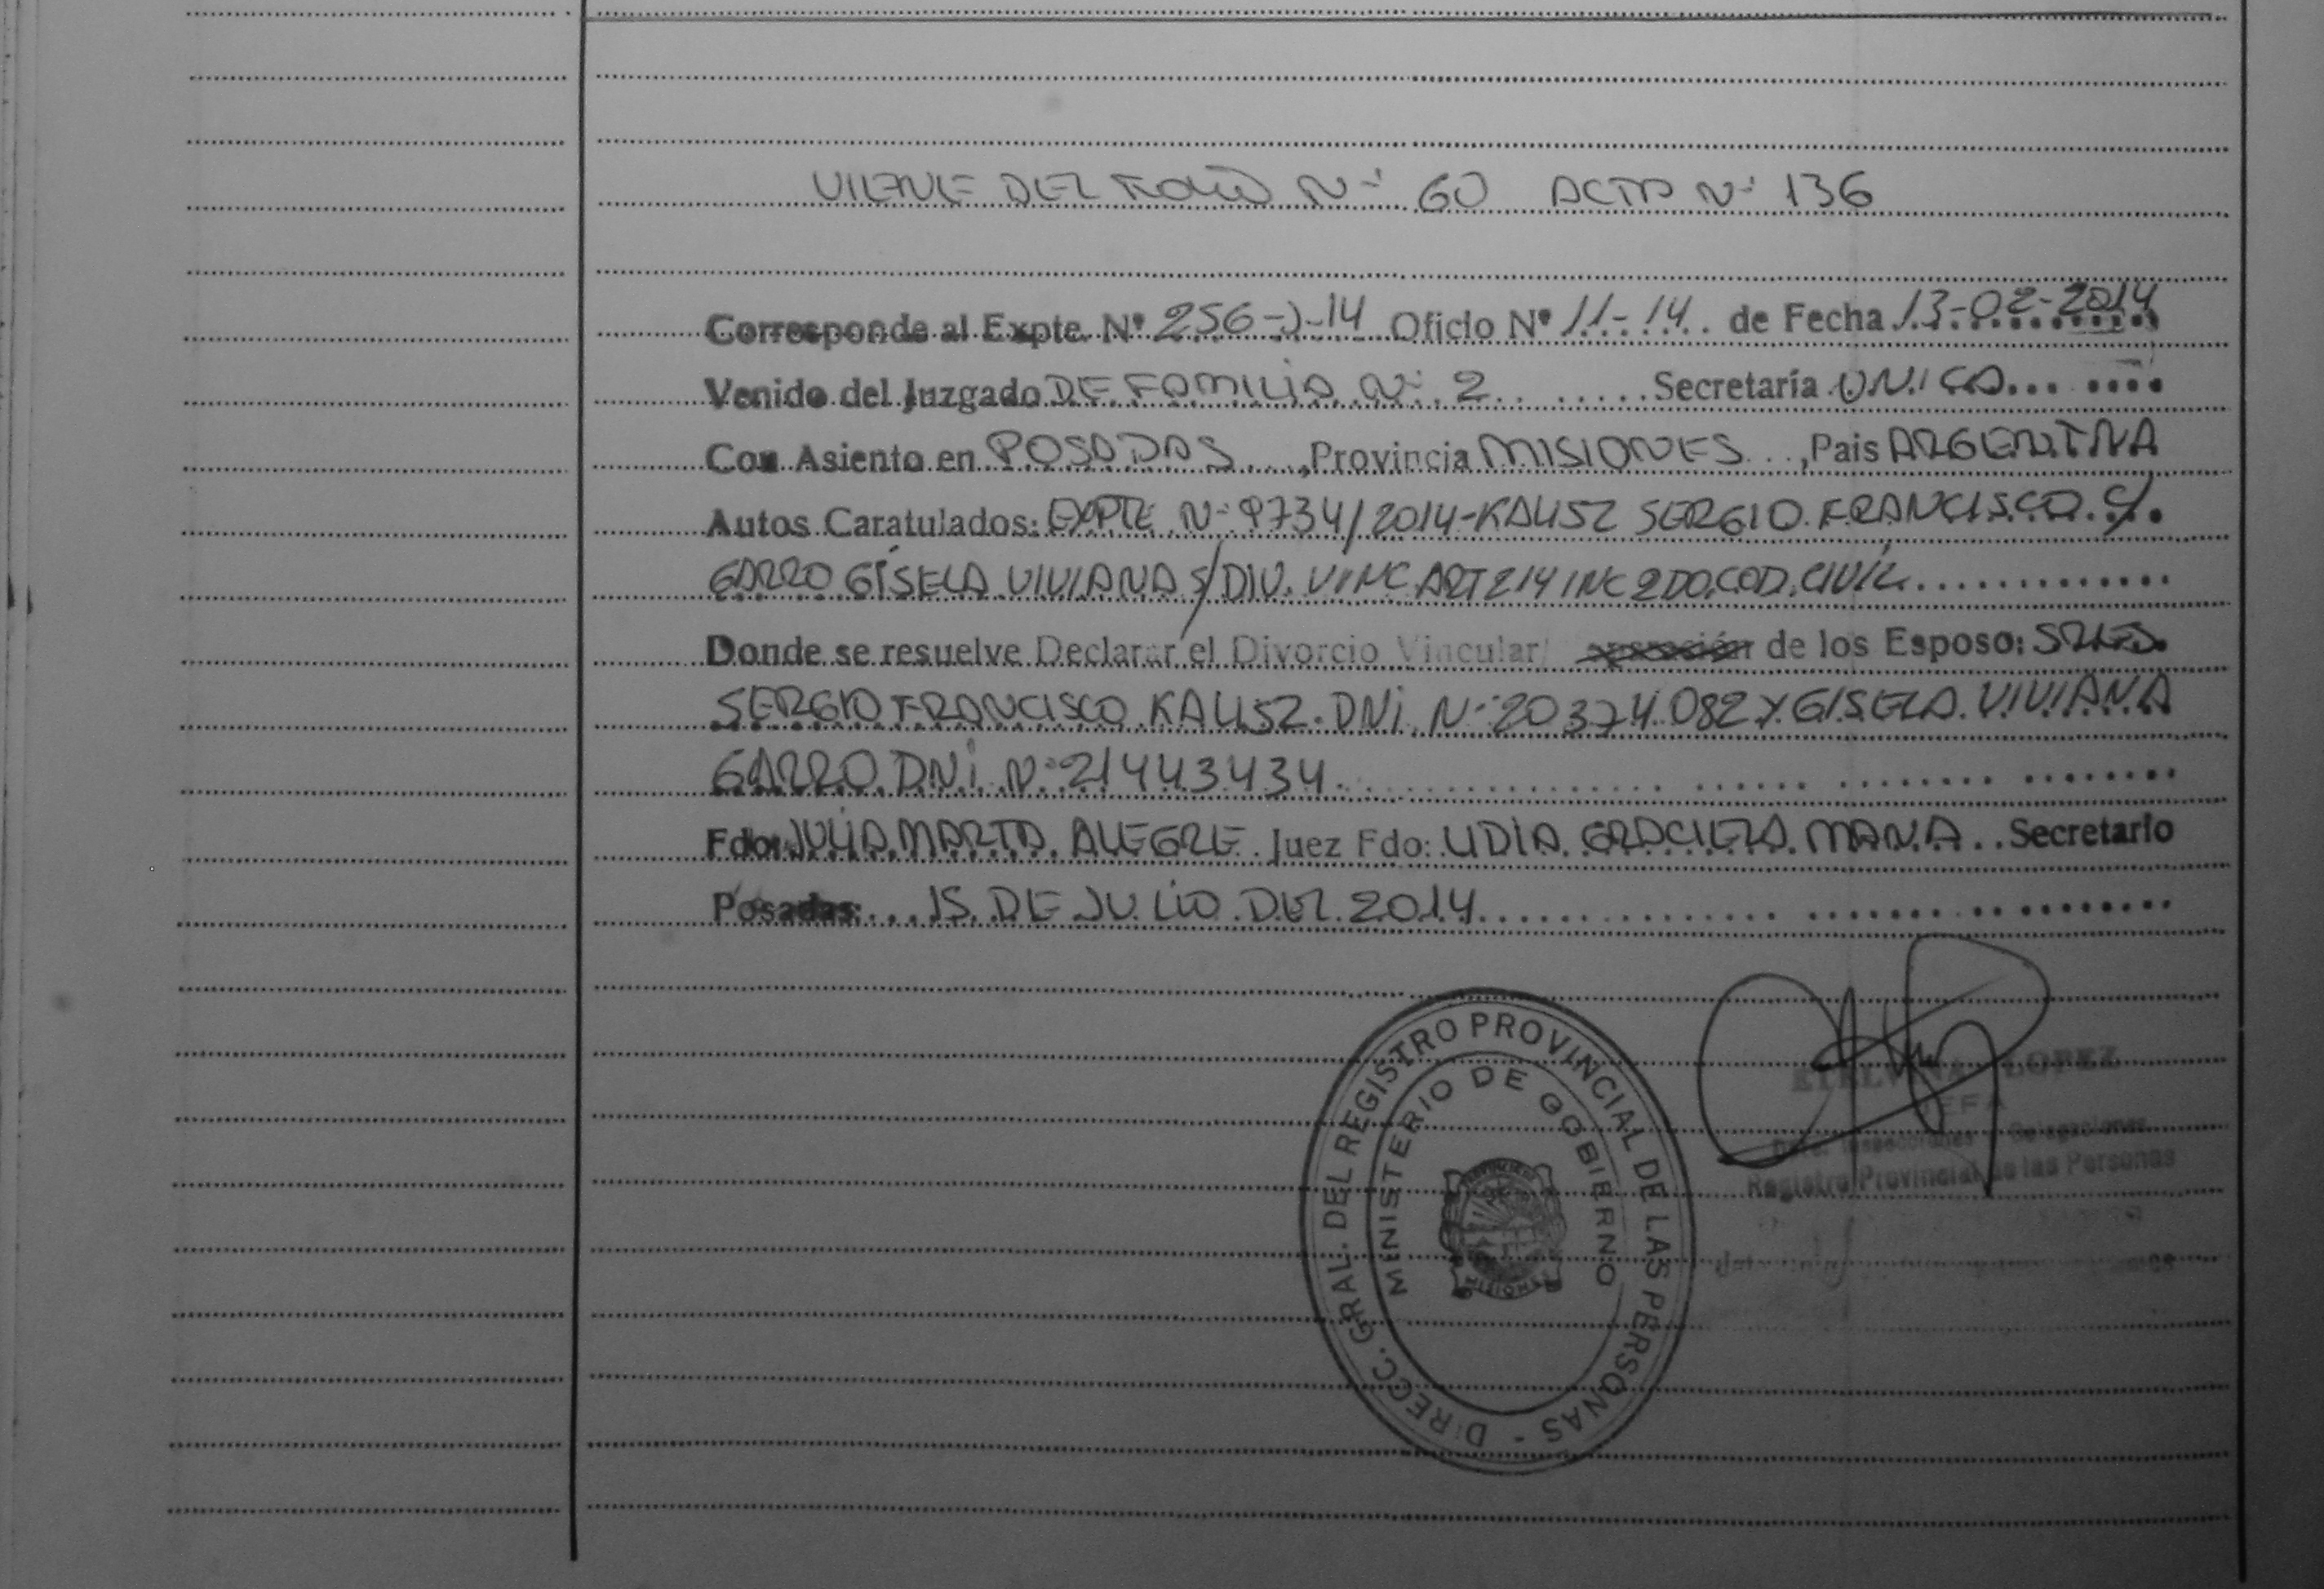 VIENE DEL FOLIO Nº 60 ACTA Nº 136
Corresponde al Expte. Nº 256-J-14 Oficio Nº 11-14. de Fecha 13-02-2014
Venido del Juzgado DE FAMILIA Nº 2 Secretaría UNICA
Con Asiento en POSADAS, Provincia MISIONES, Pais ARGENTINA
Autos Caratulados: EXPTE Nº 9734/2014-KALISZ SERGIO FRANCISCO C/
GARRO GISELA VIVIANA S/DIV. VINC ART 214 INC 2DO.COD.CIVIL
Donde se resuelve Declarar el Divorcio Vincular/ de los Esposo: SRES.
SERGIO FRANCISCO KALISZ. DNI Nº 20374.082 Y GISELA VIVIANA
GARRO DNI Nº 21443434
Fdo: JULIA MARTA ALEGRE Juez Fdo: LIDIA GRACIELA MANA Secretario
Posadas: 15 DE JULIO DEL 2014
DIRECC. GRAL. DEL REGISTRO PROVINCIAL DE LAS PERSONAS -
MINISTERIO DE GOBIERNO
MISIONES
ETELVINA LOPEZ
JEFA
Dpto. Inspecciones y Delegaciones
Registro Provincial de las Personas